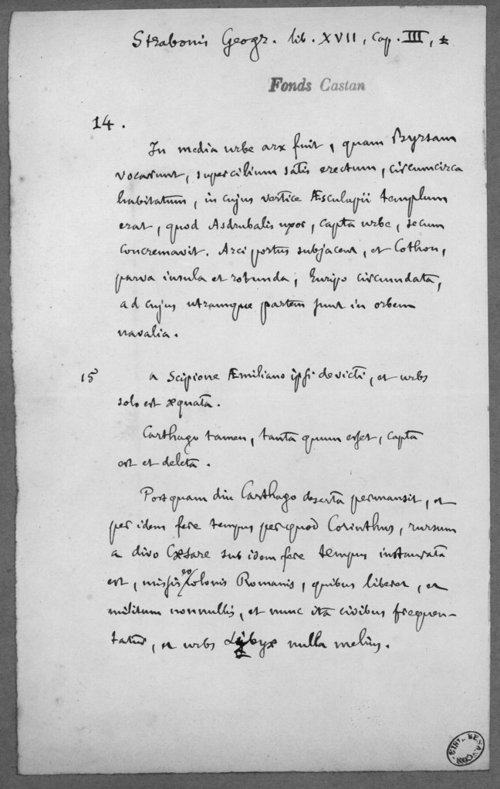 Strabonis Geogr. lib. XVII, Cap. III,
Fonds Castan
14.
In media urbe arx fuit, quam Byrsam
vocarunt, supercilium satis erectum, circumcirca
habitatum, in cujus vertice Æsculapii templum
erat, quod Asdrubalis uxor, capta urbe, secum
concremavit. Arci portus subjacent, et Cothon,
parva insula et rotunda, Euripo circumdata,
ad cujus utramque partem sunt in orbem
navalia.
15 a Scipione Æmiliano ipsi devicti, et urbs
solo est æquata.
Carthago tamen, tanta quum esset, capta
est et deleta.
Postquam diu Carthago deserta permansit, et
per idem fere tempus per quod Corinthus, rursum
a divo Cæsare sub idem fere tempus instaurata
est, missis eo colonis Romanis, quibus liberet, et
militum nonnullis, et nunc ita civibus frequen-
tatur, ut urbs Libyæ nulla melius.